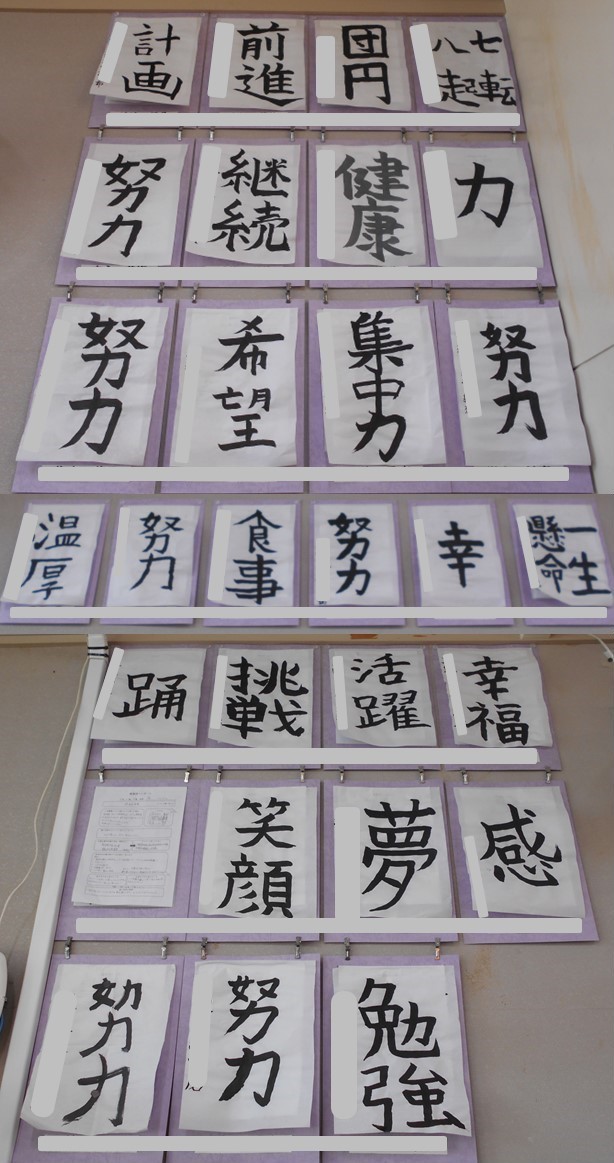 計画
前進
団円
七転
八起
努力
継続
健康
力
努力
希望
集中力
努力
温厚
努力
食事
努力
幸
一生
懸命
踊
挑戦
活躍
幸福
笑顔
夢
感
努力
努力
勉強